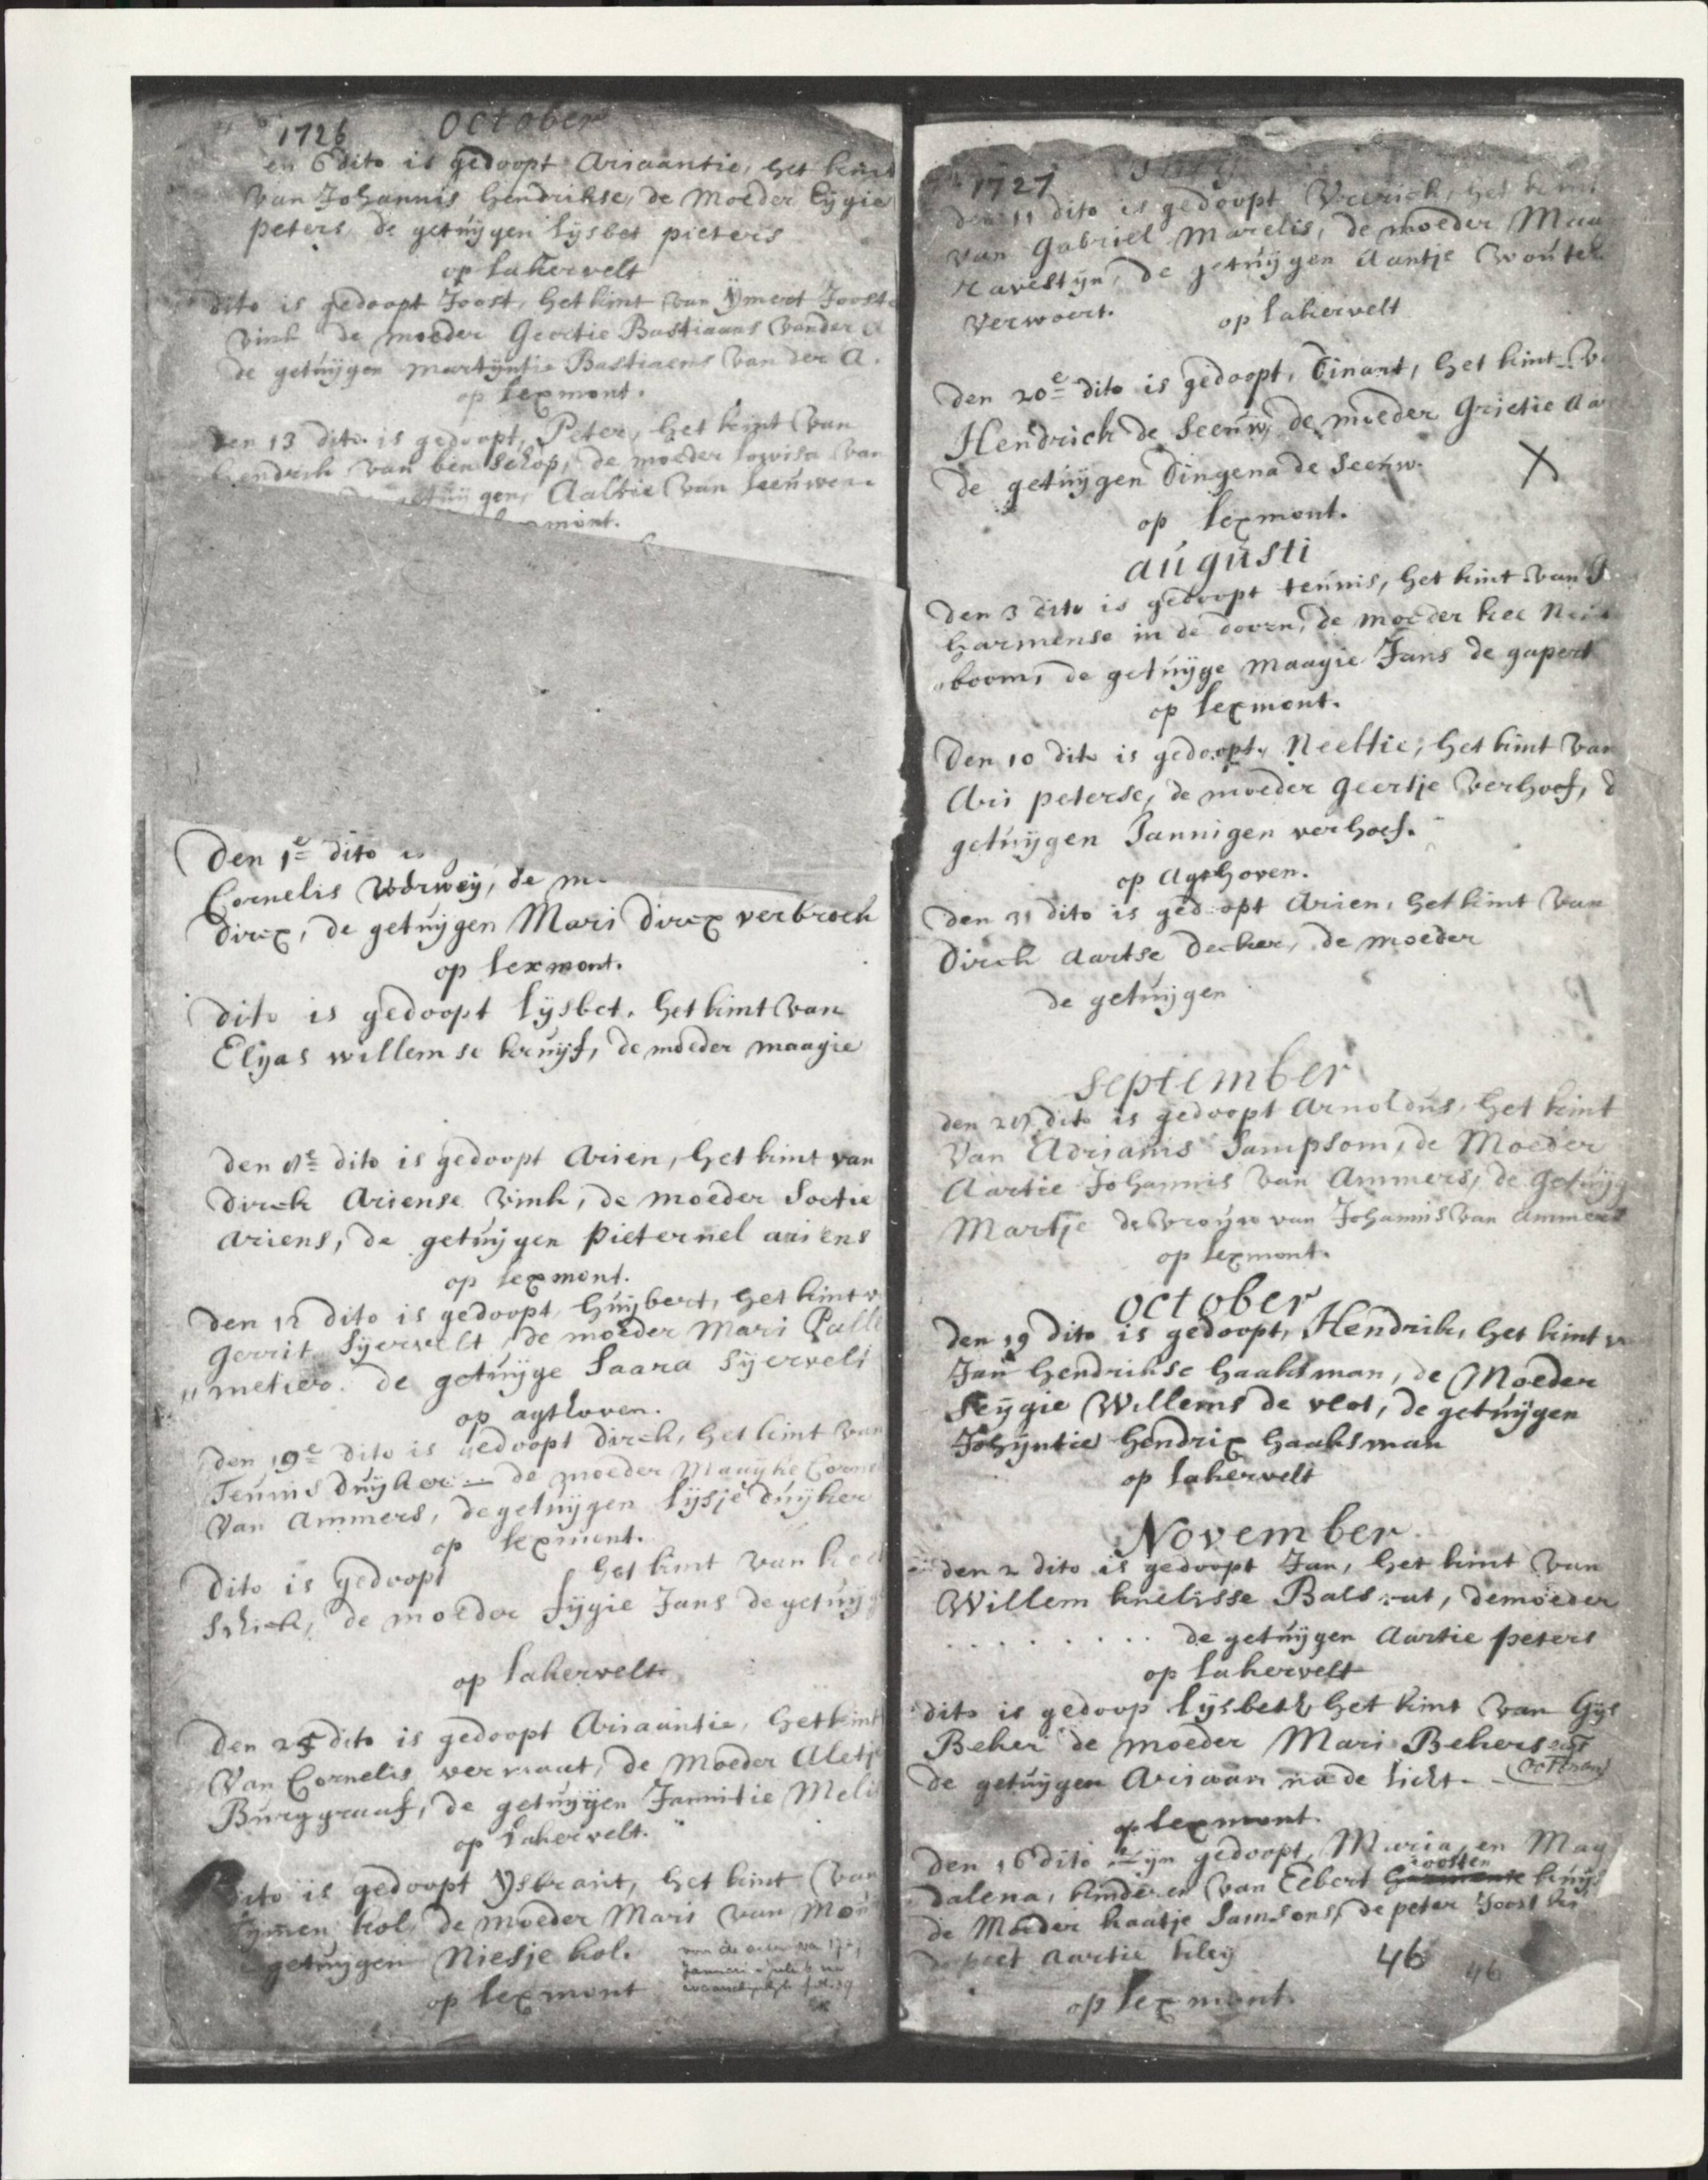 1726 October
en 6 dito is gedoopt Ariaantie, het kint
van Johannis hendrikse, de Moeder Eygie
peters, de getuÿgen lÿsbet pieters
op lakervelt
dito is gedoopt Joost, het kint van Ÿmert Joost
vink de moeder Geertie Bastiaans van der a
de getuÿgen martÿntie Bastiaens van der a.
op lexmont.
Den 13 dito is gedoopt, Peter, het kint van
hendrik van ben schop, de moeder lowisa van
getuÿgen, Aaltie van leeuwen
mont.
Den 1e dito
Cornelis verweÿ, de
dirx, de getuÿgen Mari dirx verbroek
op lexmont.
dito is gedoopt lÿsbet, het kint van
Elÿas willemse kruÿf, de moeder maagie
den 8e dito is gedoopt Arien, het kint van
dirck Ariense vink, de moeder Soetie
Ariens, de getuÿgen pieternel ariens
op lexmont.
Den 12 dito is gedoopt, huÿbert, het kint v
gerrit Sÿervelt, de moeder Mari Palle
" metier. de getuÿge Saara Sÿervelt
op agthoven.
den 19e dito is gedoopt dirck, het kint van
Teunis duÿker de moeder Maaÿke Corne
van Ammers, de getuÿgen lÿsje duÿker
op lexmont.
Dito is gedoopt het kint van
Schick, de moeder fÿgie Jans de getuÿg
op lakervelt
Den 25 dito is gedoopt Ariaantie, het kint
van Cornelis vermaat, de Moeder Aletje
Burggraaf, de getuÿgen Jannitie Meli
op lakervelt.
dito is gedoopt Ÿsbrant, het kint van
Tÿmen kol, de moeder Mari van Mon
getuÿgen Niesje kol.
op lexmont
1727
den 11 dito is gedoopt Vreerick, het kint
van Gabriel Marelis, de moeder Maa
ravestÿn, de getuÿgen Aantje Wouter
verwoert. op lakervelt
Den 20e dito is gedoopt, Dinant, het kint va
Hendrick de Seeuw, de moeder Grietie Aa
de getuÿgen Dingena de Seeuw. X
op lexmont.
augusti
Den 3 dito is gedoopt teunis, het kint van J
harmense in de doorn, de moeder kee
boom, de getuÿge Maagie Jans de gapert
op lexmont.
Den 10 dito is gedoopt, Neeltie, het kint van
Ari peterse, de moeder geertje verhoef, d
getuÿgen Jannigen verhoef.
op Agthoven.
den 31 dito is gedoopt Arien, het kint van
Dirck Aartse Decker, de moeder
de getuÿgen
September
den 21 dito is gedoopt Arnoldus, het kint
van Adrianis Sampsom, de Moeder
Aartie Johannis van Ammers, de getuÿg
Martje de vrouw van Johannis van Ammers
op lexmont.
October
den 19 dito is gedoopt, Hendrik, het kint v
Jan hendrikse haaksman, de Moeder
Seÿgie Willems de vlot, de getuÿgen
Johÿntie hendrix haaksman
op lakervelt
November
den 2 dito is gedoopt Jan, het kint van
Willem knelisse Bals, de moeder
. . . . . . . . . de getuÿgen Aartie peters
op lakervelt
dito is gedoop lÿsbeth het kint van Gÿs
Beker de moeder Mari Bekers
de getuÿgen Ariaan na de licht.
op lexmont.
den 16 dito zÿn gedoopt, Maria, en Mag
dalena, kinderen van Eebert Joosten kruÿf
de Moeder kaatje Samsons, de peter Joost
de peet Aartie kleÿ
46 46
op lexmont.